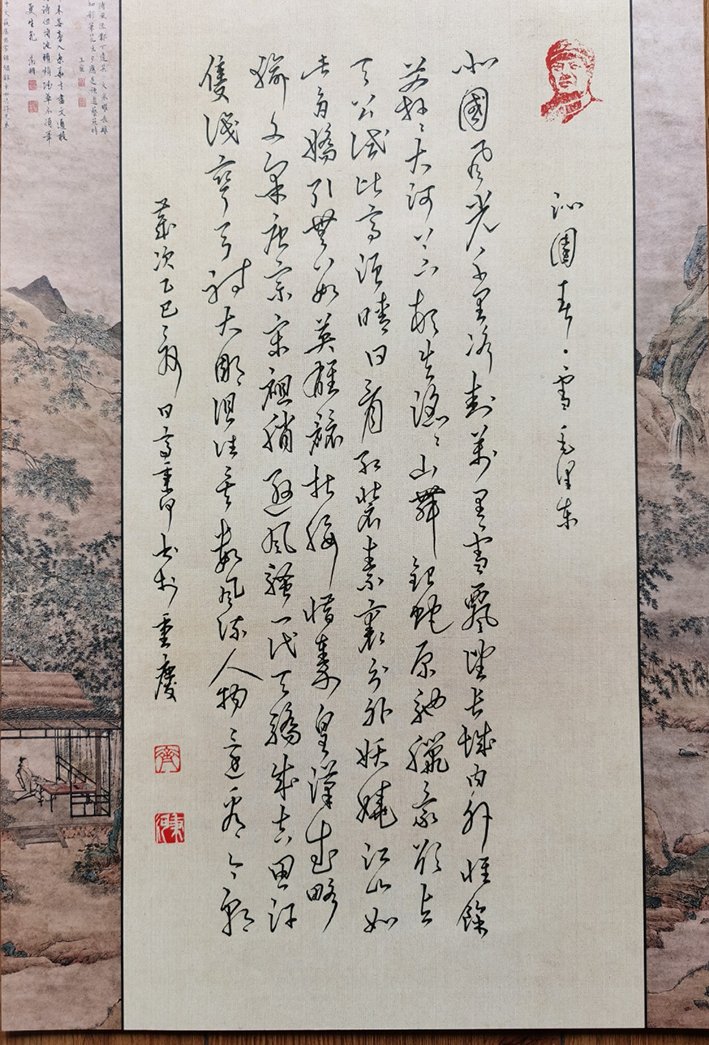 沁園春·雪 毛泽东
北國风光千里冰封萬里雪飘望长城内外惟餘
莽莽大河上下顿失滔滔山舞銀蛇原驰臘象欲与
天公试比高须晴日看红装素裹分外妖娆江山如
此多嬌引無数英雄競折腰惜秦皇漢武略
输文采唐宗宋祖稍逊风骚一代天骄成吉思汗
隻识弯弓射大雕俱往矣数风流人物还看今朝
歲次乙巳秋日高秉书於重慶